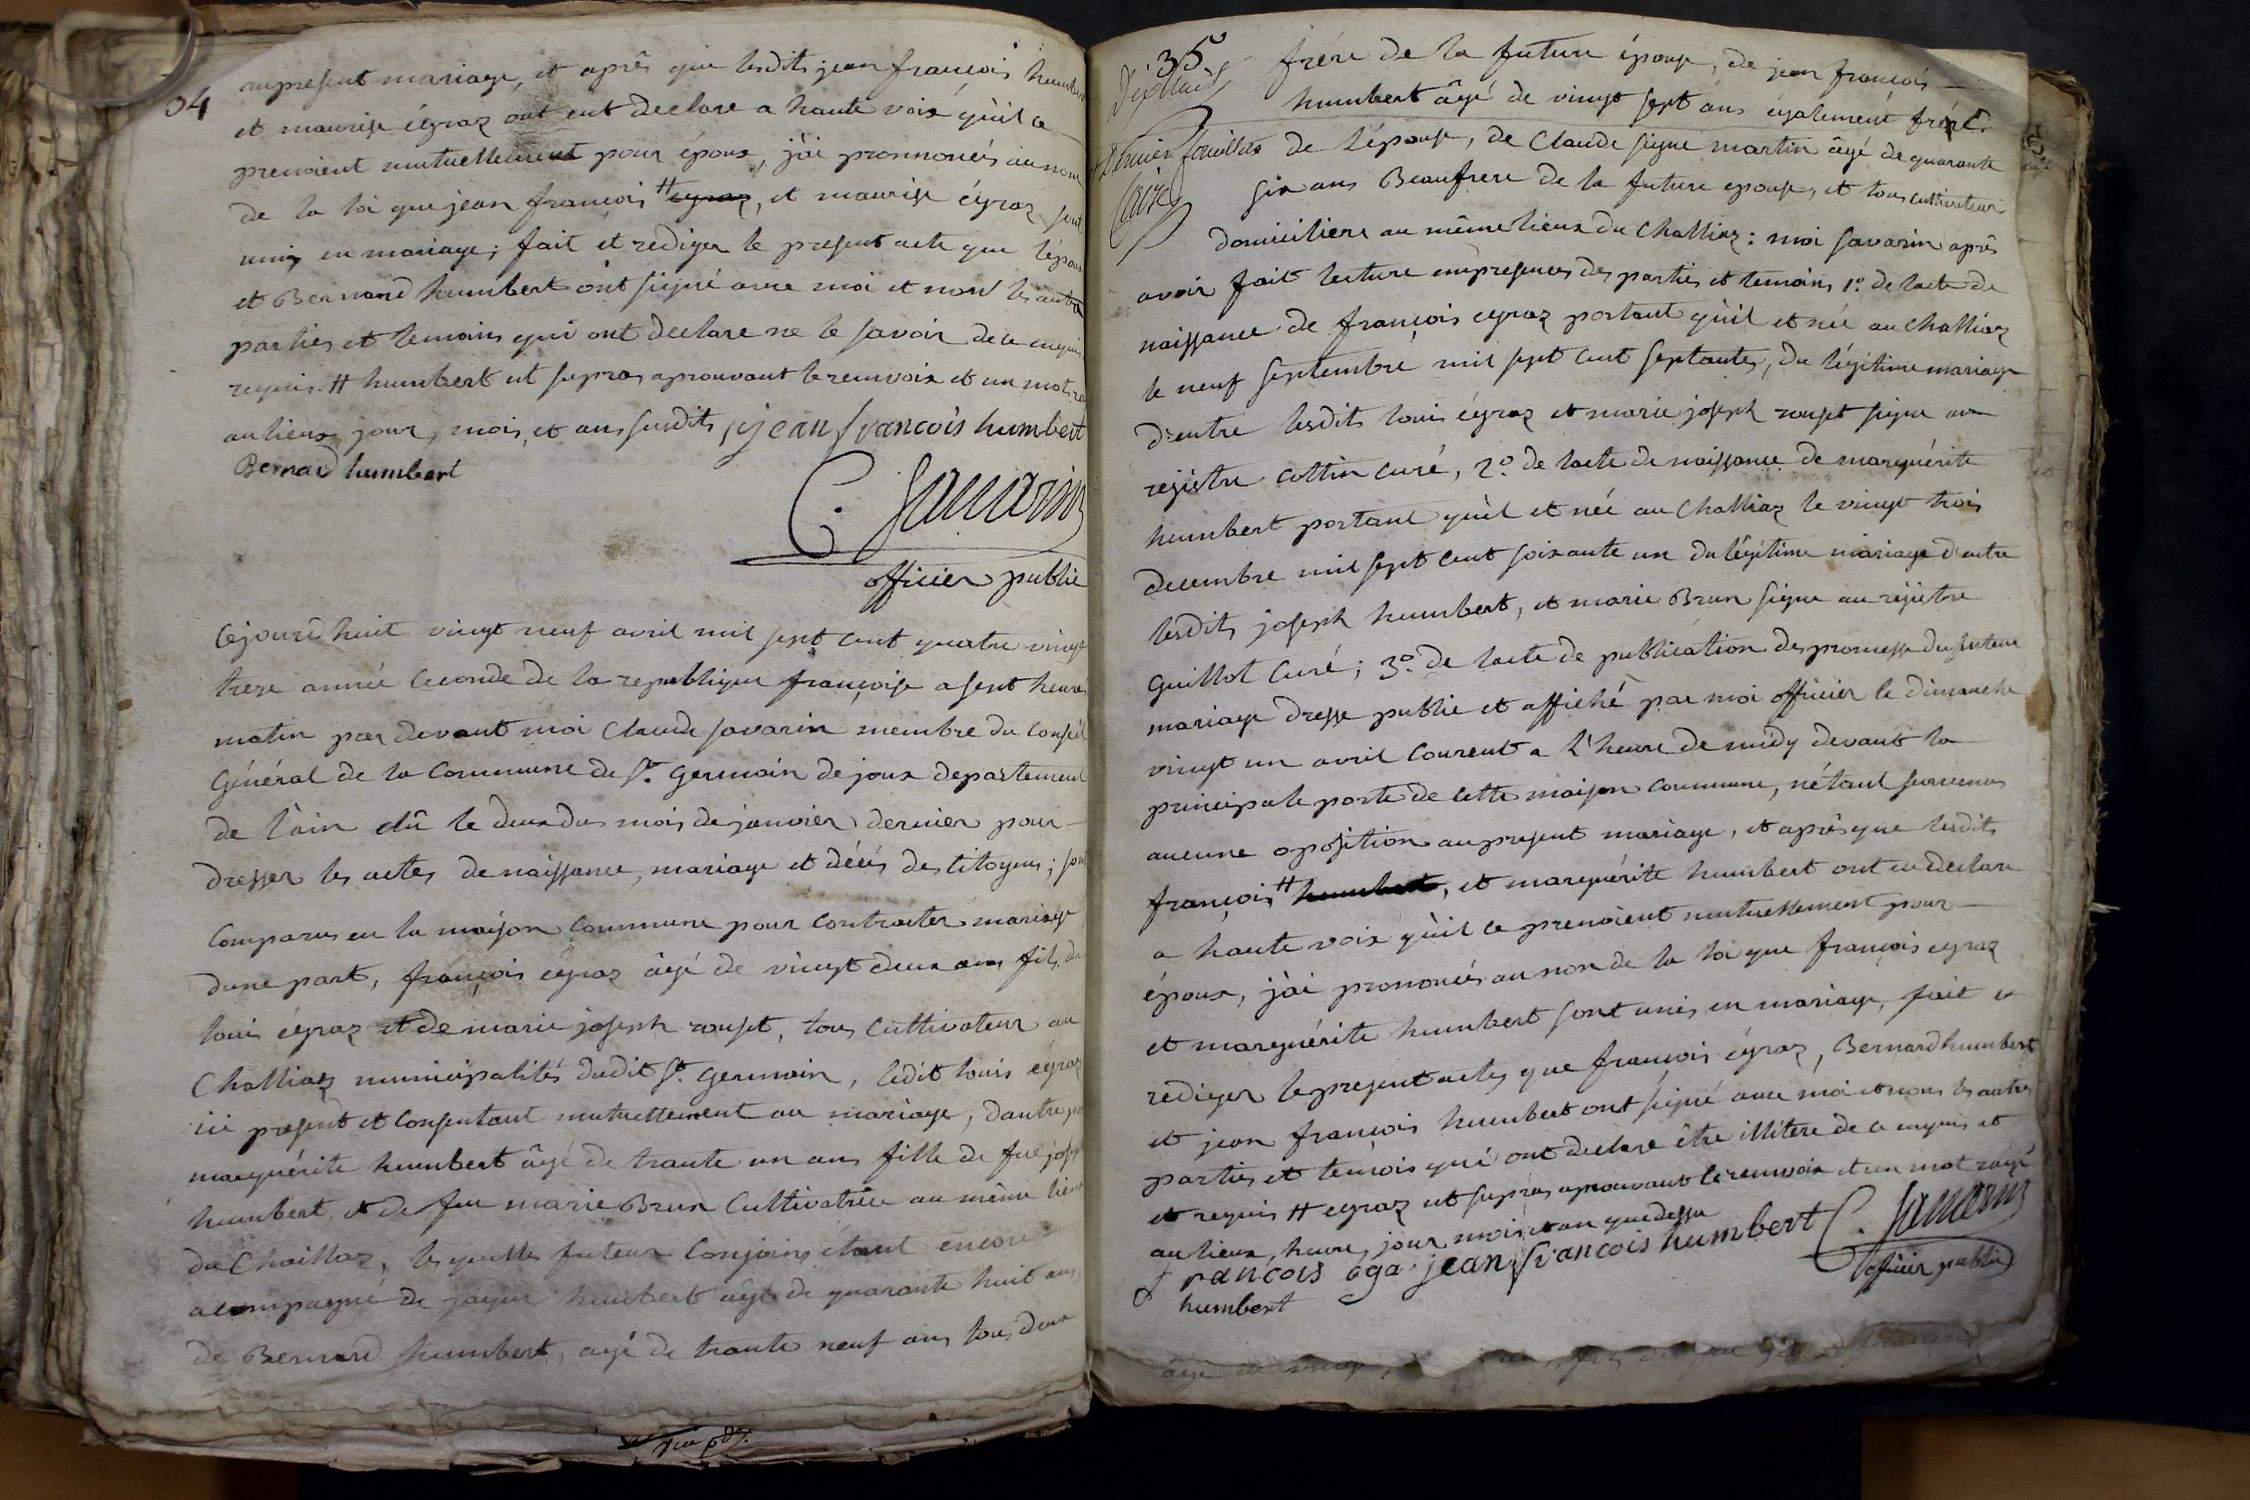 34
au present mariage, et aprês que lesdits jean françois humbert
et maurise égraz ont eut declare a haute voix qùil ce
prenoient mutuellement pour époux, j'ài pronnoncés au nom
de la loi que jean françois # egraz, et maurise égraz sont
unis en mariage; fait et rediger le present acte que l'époux
et Bernard humbert ont signé avec moi et non les autres
parties et temoins qui ont declare ne le savoir de ce enquis
requis. # humbert ut supras aprouvant le renvoix et un mot
au lieux jour, mois, et ans susdits jean françois humbert
Bernard humbert
C. Savarin
officier public
Cejourd'huit vingt neuf avril mil sept cent quatre vingt
treze année seconde de la republique françoise a sept heure
matin par devant moi Claude savarin membre du Conseil
Général de la Commune de St. Germain de joux departement
de l'àin élû le deux du mois de janvier dernier pour
dresser les actes de naissance, mariage et décés des citoyens; sont
Comparus en la maison Commune pour Contracter mariage
dune part, françois égraz âgé de vingt deux ans fils de
louis égraz et de marie joseph rouset, tous Cultivateur au
Challiaz municipalités dudit St. Germain, ledit louis égraz
ici present et Consentant mutuellement au mariage, dautre part
marguérite humbert âgé de trante un ans fille de fue joseph
humbert, et de fue marie Brun Cultivatrice au même lieux
du Chaillaz, lesquelle futeur Conjoins étant encore
acompagné de humbert âgé de quarante huit ans,
de Bernard humbert, agé de trante neuf ans, tous deux
35
frére de la future épouse, de jean françois
humbert âgé de vingt sept ans également frére
Dernier feuillet de l'épouse, de Claude signe martin âgé de quarante
six ans Beaufrere de la future epouse, et tous cultivateur
domiciliere au même lieux du Challiaz: moi savarin aprês
avoir fait lecture en presences des parties et temoins 1º. de lacte de
naissance de françois egraz portant qùil et née au Challiaz
le neuf septembre mil sept cent septantes, du légitime mariage
d'entre lesdits louis égraz et marie joseph rouset signe au
registre Cottin curé, 2º. de lacte de naissance de marguérite
humbert portant qùil et née au Challiaz le vingt trois
decembre mil sept cent soixante un du lêgitime mariage d'entre
lesdits joseph humbert, et marie Brun signe au registre
Guillot Curé; 3º. de lacte de publication des promesse du future
mariage dresse publie et affiché par moi officier le dimanche
vingt un avril courent a l'heure de midy devant la
principale porte de cette maison commune, n'étant survenus
aucune oposition au present mariage, et aprês que lesdits
françois # humbert, et marguérite humbert ont eu declare
a haute voix qùil ce prenoient mutuellement pour
époux, j'ài prononcés au non de la loi que françois egraz
et marguérite humbert sont unis en mariage, fait et
rediger le present actes que françois égraz, Bernard humbert
et jean françois humbert ont signé avec moi et nom les autres
parties et temois qui ont declare être illitere de ce enquis et
et requis # egraz ut supras aprouvant le renvoix et un mot rayé
au lieux, heure, jour mois et an que dessu
françois éga jean françois humbert C. Savarin
officier public
humbert